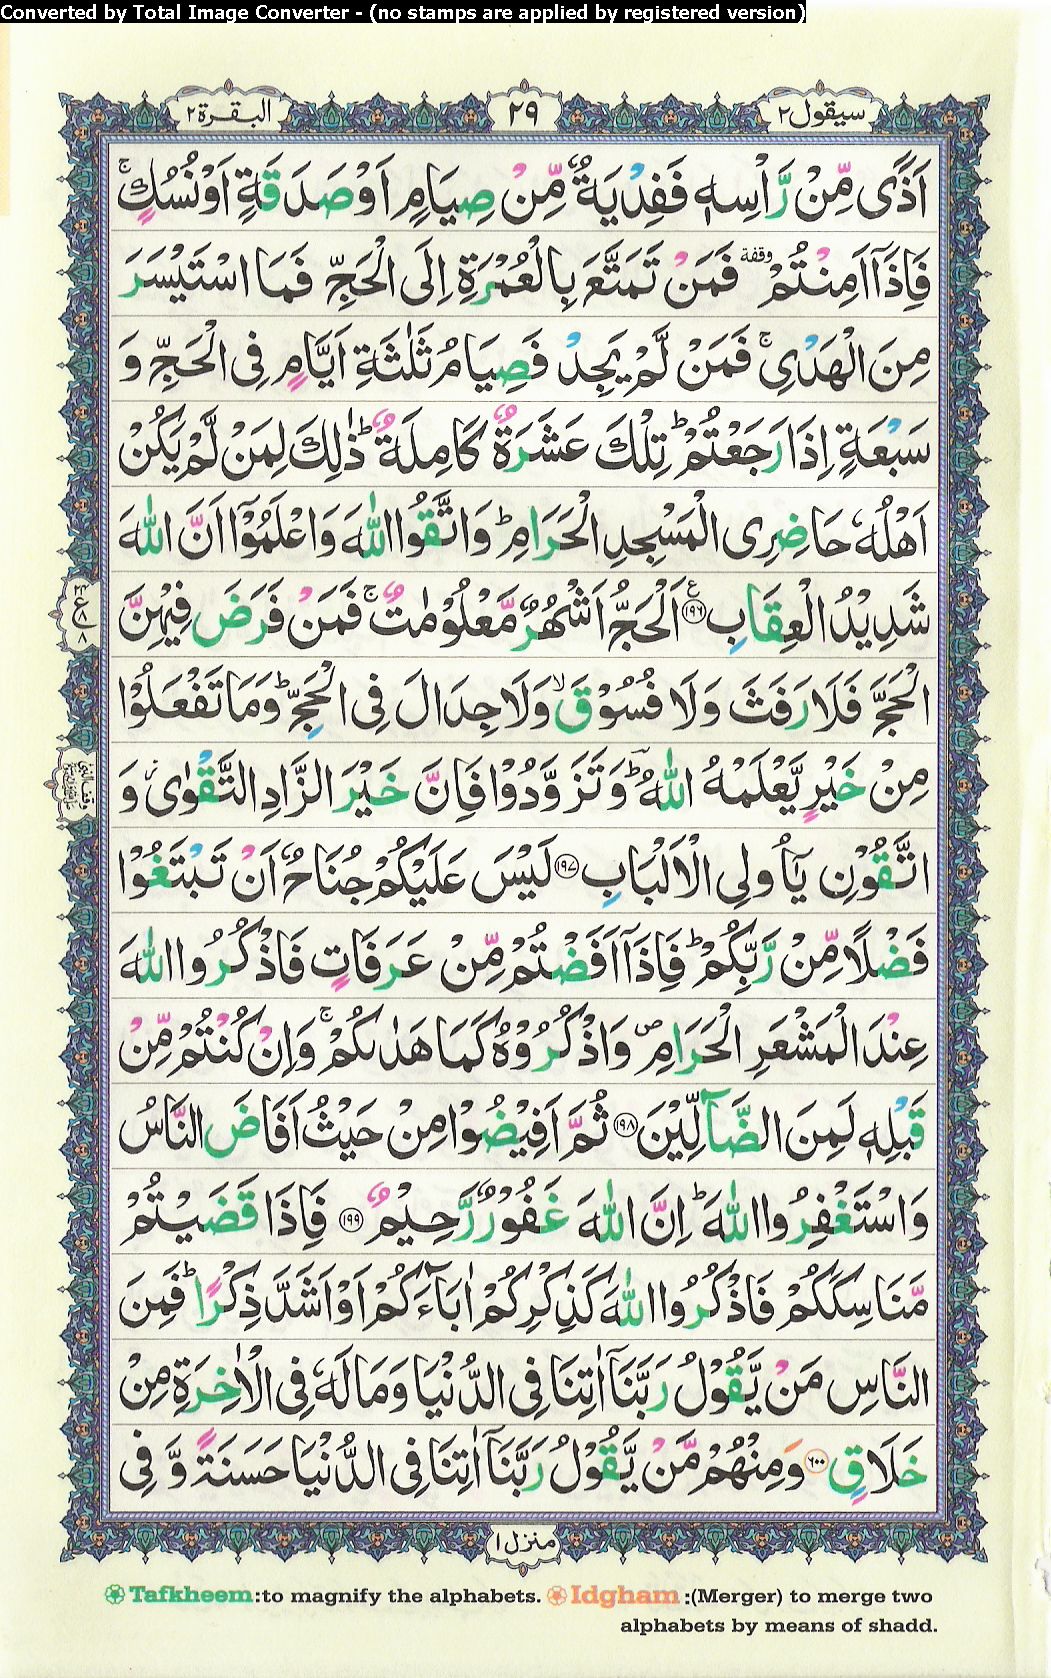 Converted by Total Image Converter - (no stamps are applied by registered version)
سيقول ٢
٢٩
البقرة ٢
اَذًى مِّنْ رَّاْسِهٖ فَفِدْيَةٌ مِّنْ صِيَامٍ اَوْ صَدَقَةٍ اَوْ نُسُكٍ ۚ
فَاِذَاۤ اَمِنْتُمْ وقفة فَمَنْ تَمَتَّعَ بِالْعُمْرَةِ اِلَى الْحَجِّ فَمَا اسْتَيْسَرَ
مِنَ الْهَدْيِ ۚ فَمَنْ لَّمْ يَجِدْ فَصِيَامُ ثَلٰثَةِ اَيَّامٍ فِى الْحَجِّ وَ
سَبْعَةٍ اِذَا رَجَعْتُمْ ؕ تِلْكَ عَشَرَةٌ كَامِلَةٌ ؕ ذٰلِكَ لِمَنْ لَّمْ يَكُنْ
اَهْلُهٗ حَاضِرِى الْمَسْجِدِ الْحَرَامِ ؕ وَاتَّقُوا اللّٰهَ وَاعْلَمُوْۤا اَنَّ اللّٰهَ
شَدِيْدُ الْعِقَابِ ؏ ﴿١٩٦﴾ اَلْحَجُّ اَشْهُرٌ مَّعْلُوْمٰتٌ ۚ فَمَنْ فَرَضَ فِيْهِنَّ
الْحَجَّ فَلَا رَفَثَ وَلَا فُسُوْقَ ۙ وَلَا جِدَالَ فِى الْحَجِّ ؕ وَمَا تَفْعَلُوْا
مِنْ خَيْرٍ يَّعْلَمْهُ اللّٰهُ ؕ وَتَزَوَّدُوْا فَاِنَّ خَيْرَ الزَّادِ التَّقْوٰى ؗ وَ
اتَّقُوْنِ يٰۤاُولِى الْاَلْبَابِ ﴿١٩٧﴾ لَيْسَ عَلَيْكُمْ جُنَاحٌ اَنْ تَبْتَغُوْا
فَضْلًا مِّنْ رَّبِّكُمْ ؕ فَاِذَاۤ اَفَضْتُمْ مِّنْ عَرَفَاتٍ فَاذْكُرُوا اللّٰهَ
عِنْدَ الْمَشْعَرِ الْحَرَامِ ۪ وَاذْكُرُوْهُ كَمَا هَدٰىكُمْ ۚ وَاِنْ كُنْتُمْ مِّنْ
قَبْلِهٖ لَمِنَ الضَّآلِّيْنَ ﴿١٩٨﴾ ثُمَّ اَفِيْضُوْا مِنْ حَيْثُ اَفَاضَ النَّاسُ
وَاسْتَغْفِرُوا اللّٰهَ ؕ اِنَّ اللّٰهَ غَفُوْرٌ رَّحِيْمٌ ﴿١٩٩﴾ فَاِذَا قَضَيْتُمْ
مَّنَاسِكَكُمْ فَاذْكُرُوا اللّٰهَ كَذِكْرِكُمْ اٰبَآءَكُمْ اَوْ اَشَدَّ ذِكْرًا ؕ فَمِنَ
النَّاسِ مَنْ يَّقُوْلُ رَبَّنَاۤ اٰتِنَا فِى الدُّنْيَا وَمَا لَهٗ فِى الْاٰخِرَةِ مِنْ
خَلَاقٍ ﴿٢٠٠﴾ وَمِنْهُمْ مَّنْ يَّقُوْلُ رَبَّنَاۤ اٰتِنَا فِى الدُّنْيَا حَسَنَةً وَّ فِى
منزل ١
Tafkheem:to magnify the alphabets. Idgham :(Merger) to merge two
alphabets by means of shadd.